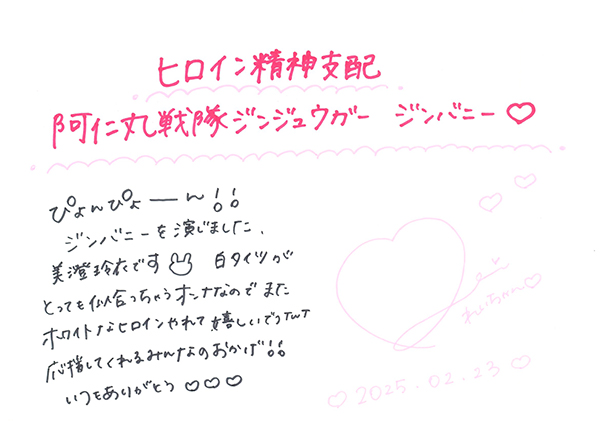 ヒロイン精神支配
阿仁丸戦隊ジンジュウガー ジンバニー♡
ぴょんぴょーん!!
ジンバニーを演じました、
美澄玲衣です 白タイツが
とっても似合っちゃうオンナなのでまた
ホワイトなヒロインやれて嬉しいですTwT
応援してくれるみんなのおかげ!!
いつもありがとう♡♡♡
れいちゃん♡
♡2025.02.23♡